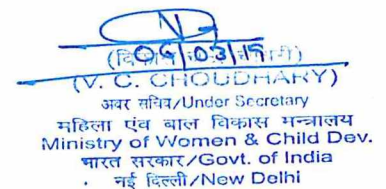 06/03/19
(V. C. CHOUDHARY)
अवर सचिव/Under Secretary
महिला एंव बाल विकास मन्त्रालय
Ministry of Women & Child Dev.
भारत सरकार/Govt. of India
नई दिल्ली/New Delhi